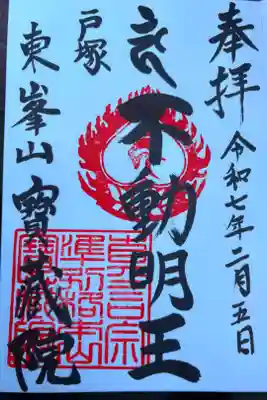 奉拝
令和七年二月五日
不動明王
戸塚
東峯山
寳藏院